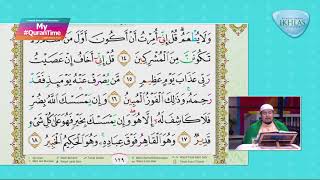 My
#QuranTime
IKHLAS
وَلَا يُطْعَمُ قُلْ إِنِّي أُمِرْتُ أَنْ أَكُونَ أَوَّلَ مَنْ
تَكُونَنَّ مِنَ الْمُشْرِكِينَ ١٤ قُلْ إِنِّي أَخَافُ إِنْ عَصَيْتُ
رَبِّي عَذَابَ يَوْمٍ عَظِيمٍ ١٥ مَّن يُصْرَفْ عَنْهُ يَوْمَئِذٍ فَقَدْ
رَحِمَهُ وَذَٰلِكَ الْفَوْزُ الْمُبِينُ ١٦ وَإِن يَمْسَسْكَ اللَّهُ بِضُرٍّ
فَلَا كَاشِفَ لَهُ إِلَّا هُوَ وَإِن يَمْسَسْكَ بِخَيْرٍ فَهُوَ عَلَىٰ كُلِّ شَيْءٍ
قَدِيرٌ ١٧ وَهُوَ الْقَاهِرُ فَوْقَ عِبَادِهِ وَهُوَ الْحَكِيمُ الْخَبِيرُ ١٨
١٢٩